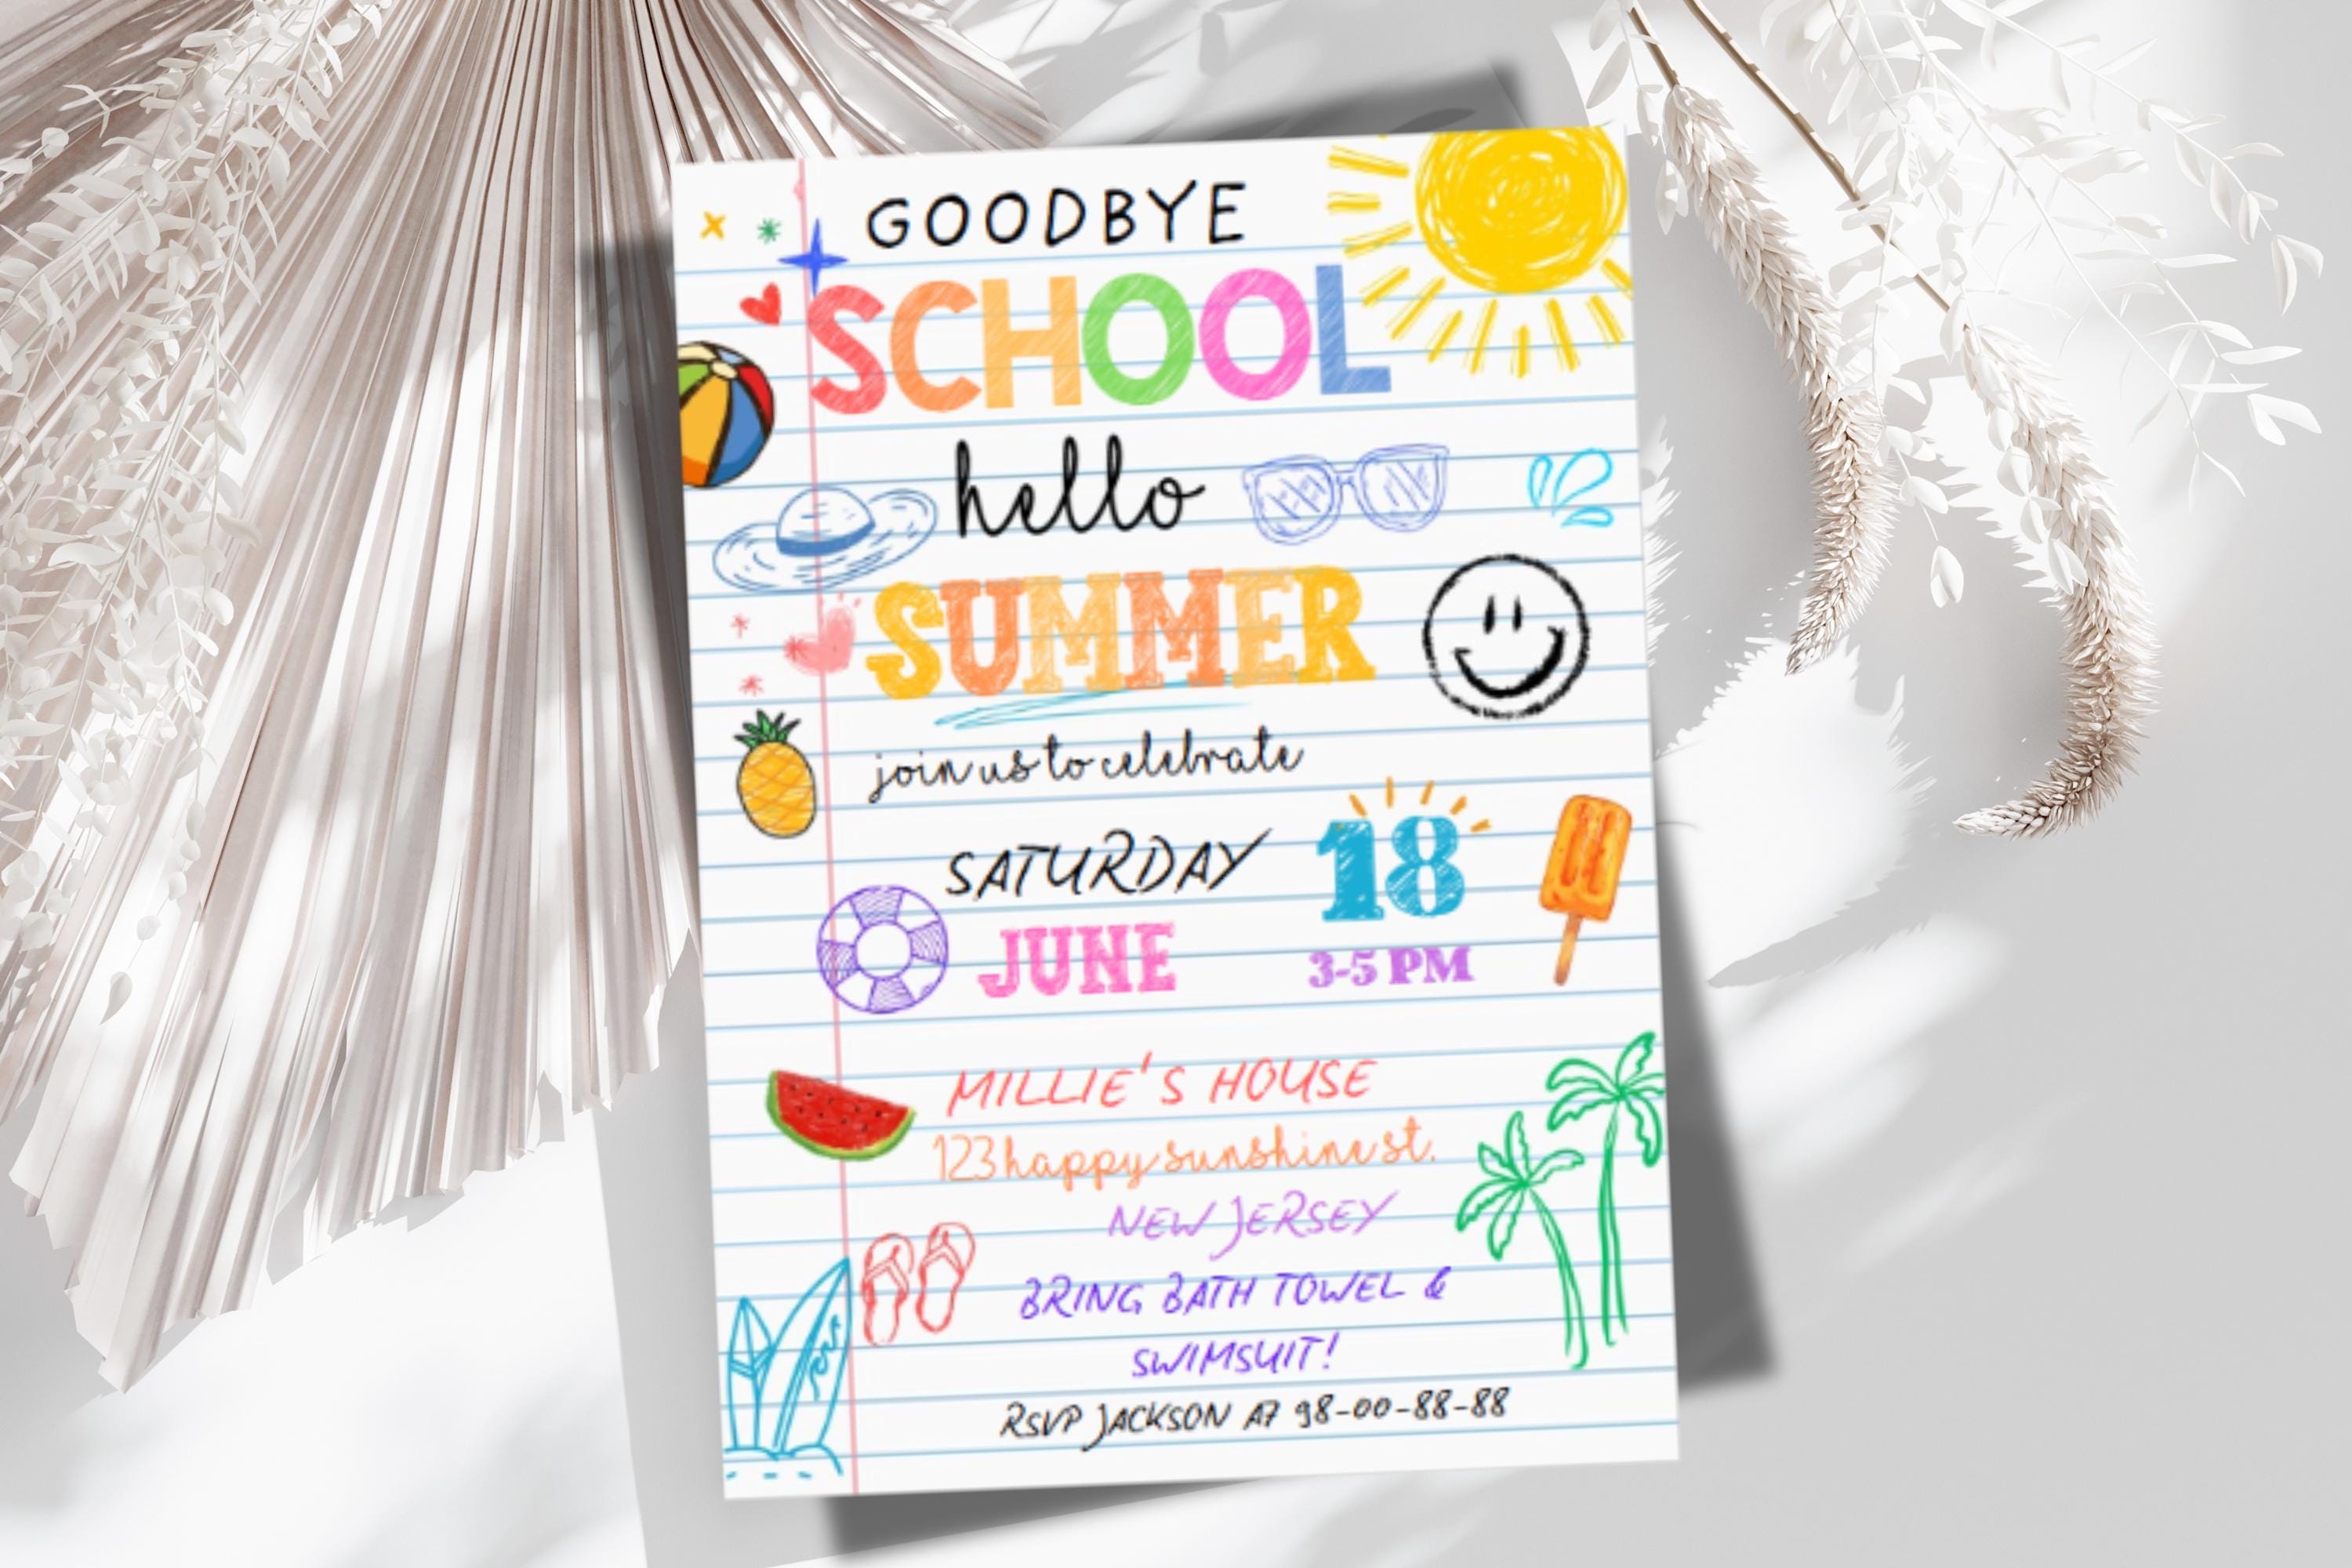 GOODBYE
SCHOOL
hello
SUMMER
join us to celebrate
SATURDAY 18
JUNE 3-5 PM
MILLIE'S HOUSE
123 happy sunshine st.
NEW JERSEY
BRING BATH TOWEL &
SWIMSUIT!
RSVP JACKSON AT 98-00-88-88